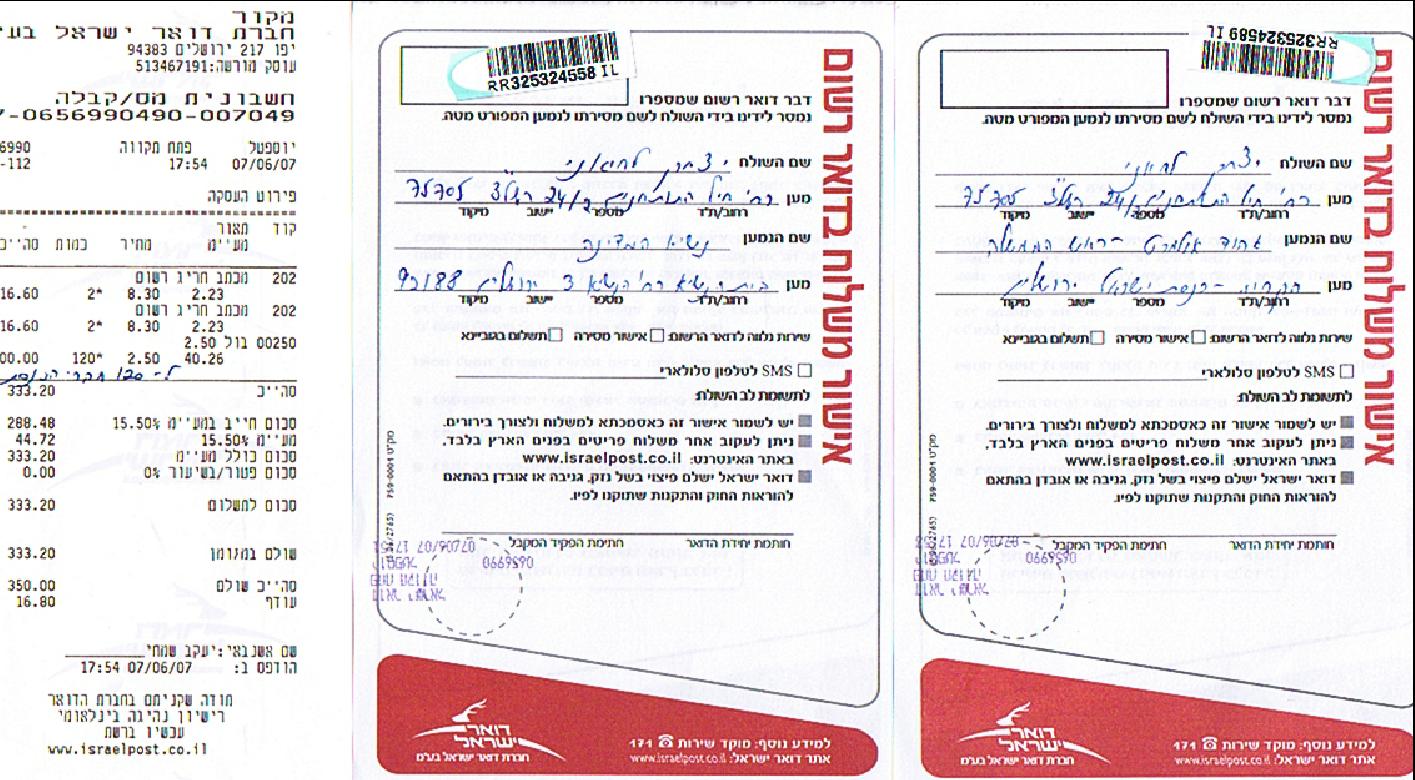 מקור
חברת דואר ישראל בע
יפו 217 ירושלים 94383
עוסק מורשה: 513467191
חשבונית מס/קבלה
7-0656990490-007049
יוספטל פתח תקווה 6990
07/06/07 17:54 112-
פירוט העסקה
קוד תאור
מע"מ מחיר כמות סה"כ
202 מכתב חריג רשום
2.23 8.30 2* 16.60
202 מכתב חריג רשום
2.23 8.30 2* 16.60
00250 בול 2.50
40.26 2.50 120* 00.00
ל-120 חברי הכנסת
סה"כ 333.20
סכום חייב במע"מ 15.50% 288.48
מע"מ 15.50% 44.72
סכום כולל מע"מ 333.20
סכום פטור/בשיעור 0% 0.00
סכום לתשלום 333.20
שולם במזומן 333.20
סה"כ שולם 350.00
עודף 16.80
שם אשנבאי: יעקב שמחי
הודפס ב: 07/06/07 17:54
תודה שקניתם בחברת הדואר
רישיון נהיגה בינלאומי
עכשיו ברשת
www.israelpost.co.il
אישור משלוח בדואר רשום
RR325324558 IL
דבר דואר רשום שמספרו
נמסר לידינו בידי השולח לשם מסירתו לנמען המפורט מטה.
שם השולח יצחק
מען רח' חיל 24/2 ראשל"צ 75705
רחוב/ת"ד מספר יישוב מיקוד
שם הנמען נשיא המדינה
מען בית הנשיא רח' הנשיא 3 ירושלים 92188
רחוב/ת"ד מספר יישוב מיקוד
שירות נלווה לדואר הרשום: אישור מסירה תשלום בגוביינא
SMS לטלפון סלולארי
לתשומת לב השולח:
יש לשמור אישור זה כאסמכתא למשלוח ולצורך בירורים.
ניתן לעקוב אחר משלוח פריטים בפנים הארץ בלבד,
באתר האינטרנט: www.israelpost.co.il
דואר ישראל ישלם פיצוי בשל נזק, גניבה או אובדן בהתאם
להוראות החוק והתקנות שתוקנו לפיו.
חותמת יחידת הדואר חתימת הפקיד המקבל
07/06/07
0656990
דואר ישראל
חברת דואר ישראל בע"מ
למידע נוסף: מוקד שירות 171
אתר דואר ישראל: www.israelpost.co.il
אישור משלוח בדואר רשום
RR325324589 IL
דבר דואר רשום שמספרו
נמסר לידינו בידי השולח לשם מסירתו לנמען המפורט מטה.
שם השולח יצחק
מען רח' חיל 24/2 ראשל"צ 75705
רחוב/ת"ד מספר יישוב מיקוד
שם הנמען אהוד אולמרט - ראש הממשלה
מען הקריה - כנסת ישראל ירושלים
רחוב/ת"ד מספר יישוב מיקוד
שירות נלווה לדואר הרשום: אישור מסירה תשלום בגוביינא
SMS לטלפון סלולארי
לתשומת לב השולח:
יש לשמור אישור זה כאסמכתא למשלוח ולצורך בירורים.
ניתן לעקוב אחר משלוח פריטים בפנים הארץ בלבד,
באתר האינטרנט: www.israelpost.co.il
דואר ישראל ישלם פיצוי בשל נזק, גניבה או אובדן בהתאם
להוראות החוק והתקנות שתוקנו לפיו.
חותמת יחידת הדואר חתימת הפקיד המקבל
07/06/07
0656990
דואר ישראל
חברת דואר ישראל בע"מ
למידע נוסף: מוקד שירות 171
אתר דואר ישראל: www.israelpost.co.il